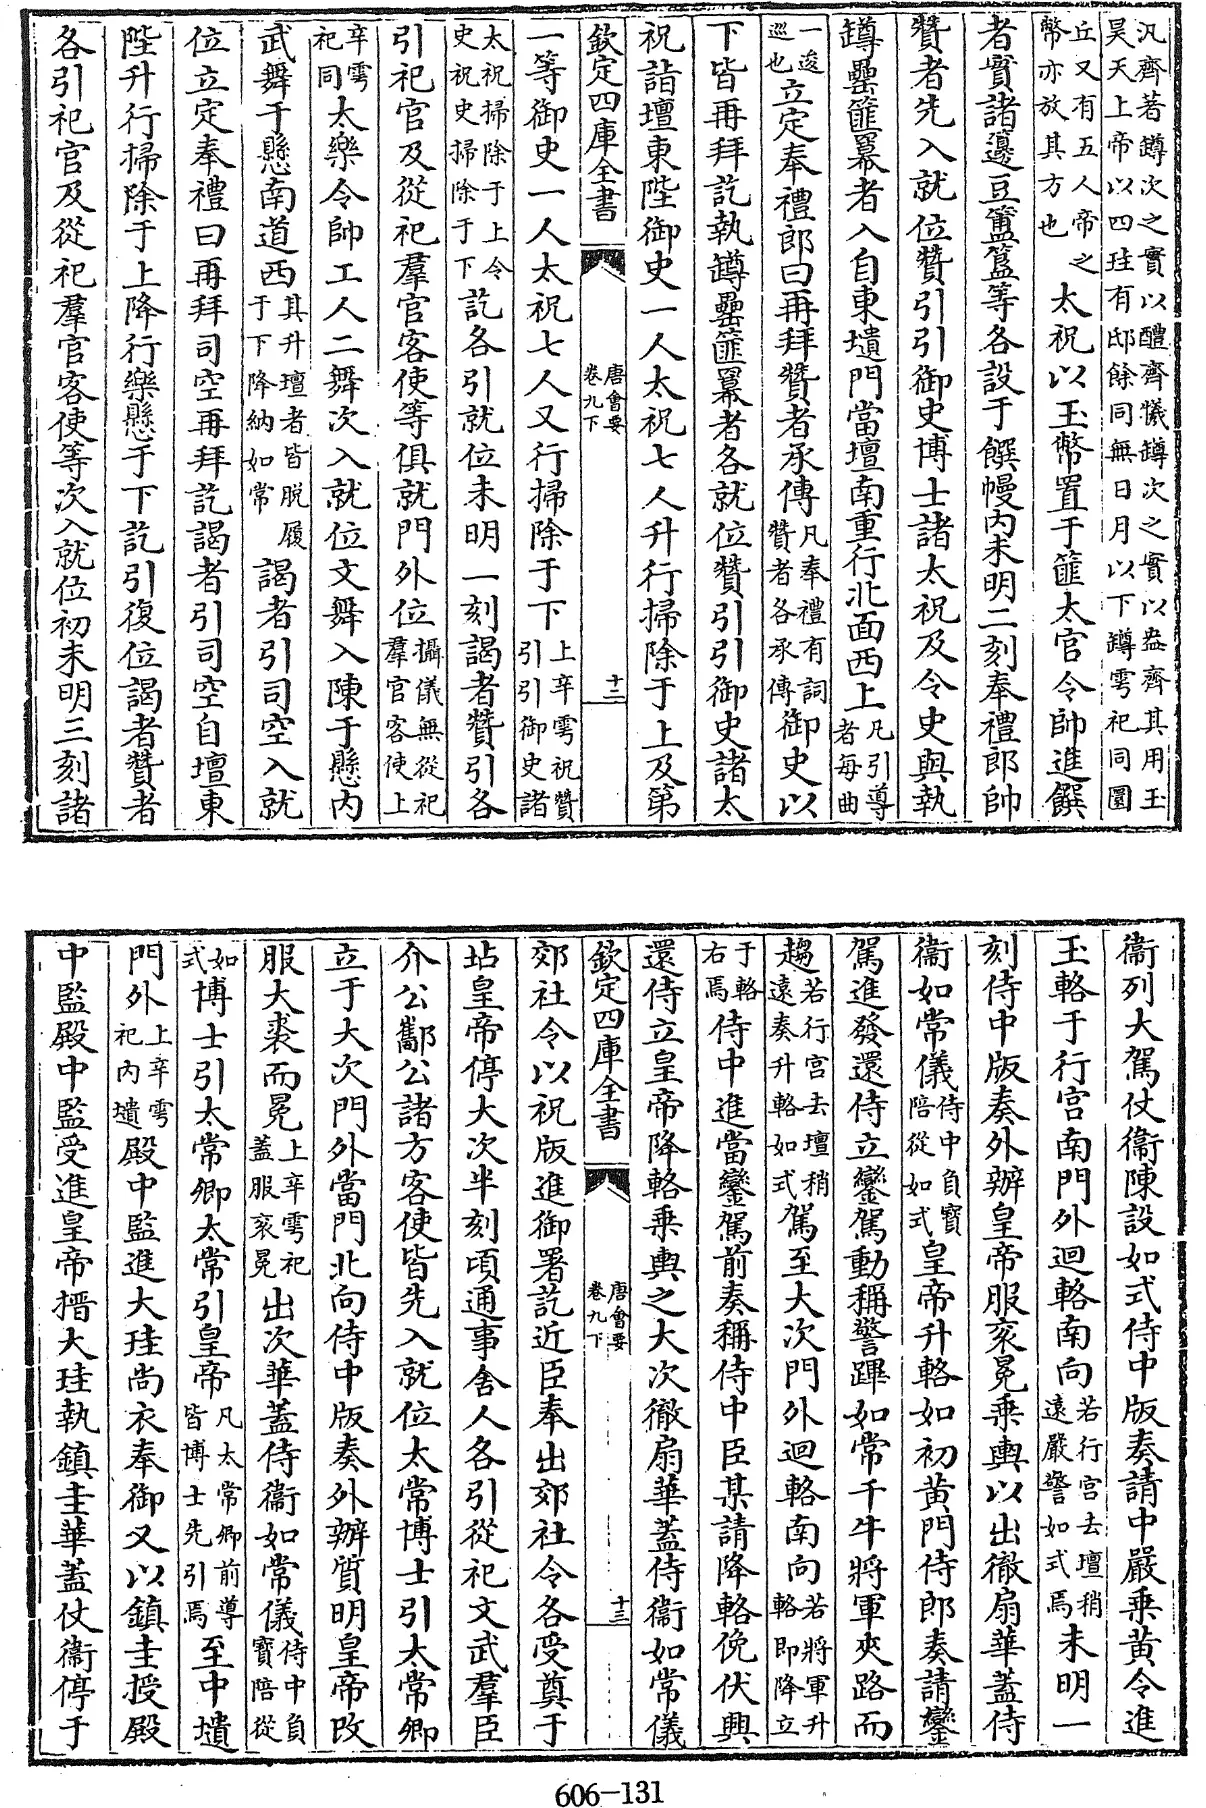 汎齊若罇次之實以醴齊犧罇次之實以盎齊其用玉
昊天上帝以四珪有邸餘同無日月以下罇雩祀同圜
丘又有五人帝之
幣亦放其方也
太祝以玉幣置于篚太官令帥進饌
者實諸籩豆簠簋等各設于饌幔内未明二刻奉禮郎帥
贊者先入就位贊引引御史博士諸太祝及令史與執
罇罍篚羃者入自東壝門當壇南重行北面西上凡引導者每曲
一逡巡也立定奉禮郎曰再拜贊者承傳凡奉禮有詞贊者各承傳御史以
下皆再拜訖執罇罍篚羃者各就位贊引引御史諸太
祝詣壇東陛御史一人太祝七人升行掃除于上及第
欽定四庫全書 唐會要卷九下 十二
一等御史一人太祝七人又行掃除于下上辛雩祀贊引引御史諸
太祝掃除于上令史祝史掃除于下訖各引就位未明一刻謁者贊引各
引祀官及從祀羣官客使等俱就門外位攝儀無從祀羣官客使上
辛雩祀同太樂令帥工人二舞次入就位文舞入陳于懸内
武舞于懸南道西其升壇者皆脱履于下降納如常謁者引司空入就
位立定奉禮曰再拜司空再拜訖謁者引司空自壇東
陛升行掃除于上降行樂懸于下訖引復位謁者贊者
各引祀官及從祀羣官客使等次入就位初未明三刻諸
衞列大駕仗衞陳設如式侍中版奏請中嚴乗黄令進
玉輅于行宫南門外迴輅南向若行宫去壇稍逺嚴警如式焉未明一
刻侍中版奏外辦皇帝服衮冕乗輿以出徹扇華蓋侍
衞如常儀侍中負寶陪從如式皇帝升輅如初黄門侍郎奏請鑾
駕進發還侍立鑾駕動稱警蹕如常千牛將軍夾路而
趨若行宫去壇稍逺奏升輅如式駕至大次門外迴輅南向若將軍升輅即降立
于輅右焉侍中進當鑾駕前奏稱侍中臣某請降輅俛伏興
還侍立皇帝降輅乗輿之大次徹扇華蓋侍衞如常儀
欽定四庫全書 唐會要卷九下 十三
郊社令以祝版進御署訖近臣奉出郊社令各受奠于
坫皇帝停大次半刻頃通事舍人各引從祀文武羣臣
介公酅公諸方客使皆先入就位太常博士引太常卿
立于大次門外當門北向侍中版奏外辦質明皇帝改
服大裘而冕上辛雩祀蓋服衮冕出次華蓋侍衞如常儀侍中負寶陪從
如式博士引太常卿太常引皇帝凡太常卿前導皆博士先引焉至中壝
門外上辛雩祀内壝殿中監進大珪尚衣奉御又以鎮圭授殿
中監殿中監受進皇帝搢大珪執鎮圭華蓋仗衞停于
606-131